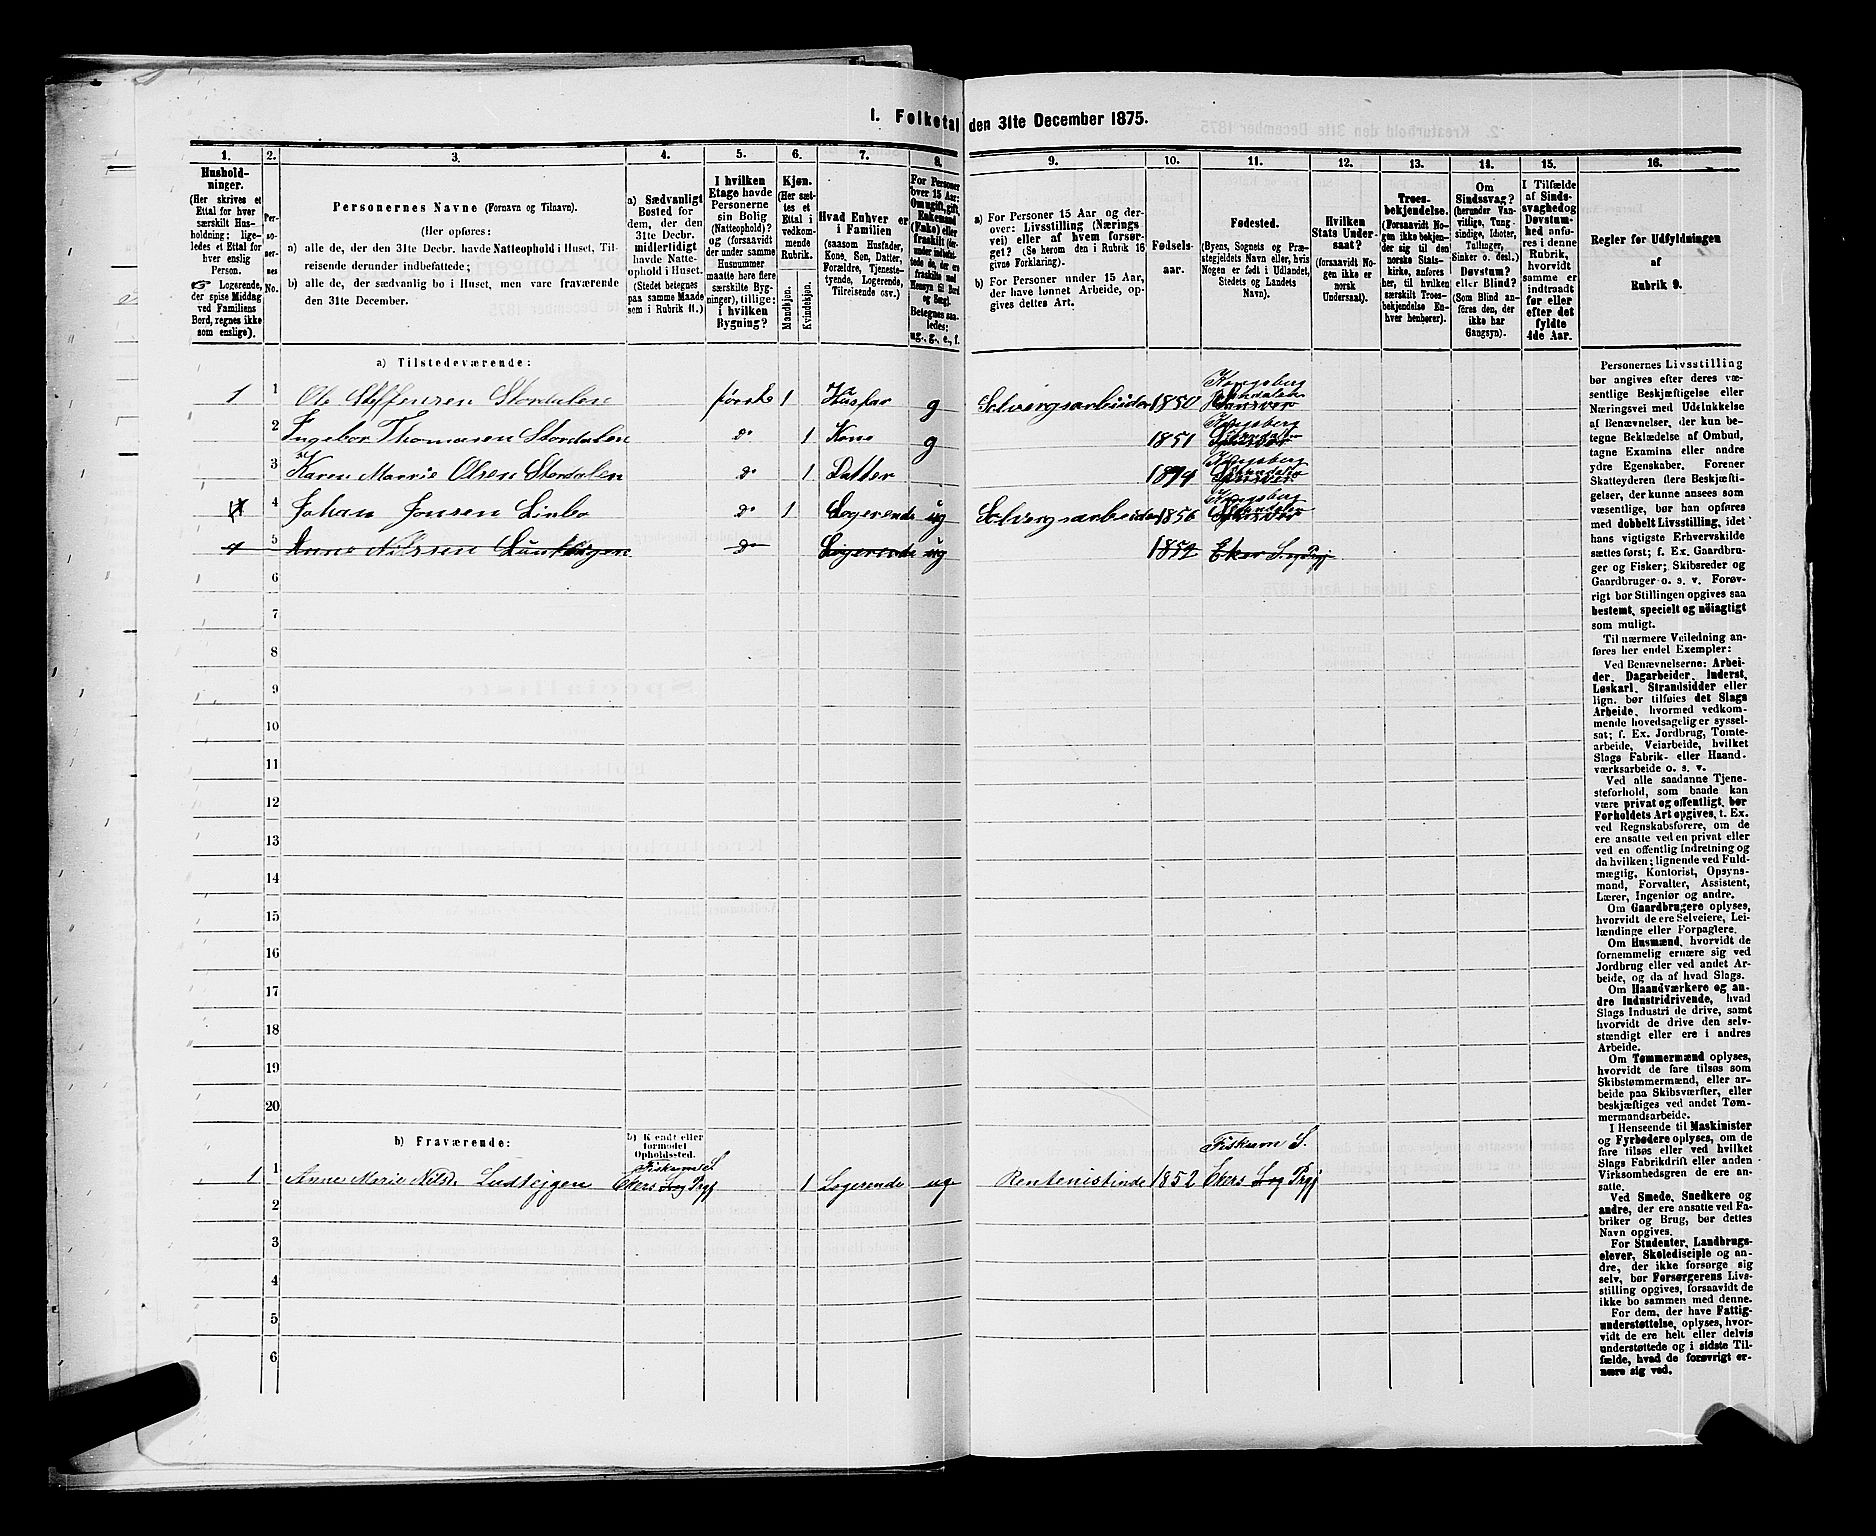 1. Folketal den 31te December 1875.
1. 2. 3. 4. 5. 6. 7. 8. 9. 10. 11. 12. 13. 14. 15. 16.
Hushold-
ninger.
(Her skrives et
Ettal for hver
særskilt Hus-
holdning; lige-
ledes et Ettal for
hver enslig
Person.
☞ Logerende,
der spise Middag
ved Familiens
Bord, regnes ikke
som enslige).
Per-
so-
ner-
nes
No.
Personernes Navne (Fornavn og Tilnavn).
(Her opføres:
a) alle de, der den 31te Decbr. havde Natteophold i Huset, Til-
reisende derunder indbefattede;
b) alle de, der sædvanlig bo i Huset, men vare fraværende
den 31te December.
a) Sædvanligt
Bosted for
dem, der den
31te Decbr.
midlertidigt
havde Natte-
ophold i Huset.
(Stedet betegnes
paa samme Maade
som i Rubrik 11.)
I hvilken
Etage havde
Personerne
sin Bolig
(Natteophold)?
og (forsaavidt
der under samme
Husnummer
maatte høre flere
særskilte Byg-
ninger), tillige:
i hvilken
Bygning?
Kjøn.
(Her sæt-
tes et
Ettal i
vedkom-
mende
Rubrik.
Mandkjøn.
Kvindekjøn.
Hvad Enhver er
i Familien
(saasom Husfader,
Kone, Søn, Datter,
Forældre, Tjeneste-
tyende, Logerende,
Tilreisende osv.)
For Personer
over 15 Aar:
Om ugift, gift,
Enkemand
(Enke) eller
fraskilt
Betegnes saa-
ledes:
ug., g., e., f.
a) For Personer 15 Aar og der-
over: Livsstilling (Nærings
vei) eller af hvem forsør-
get? (Se herom den i Rubrik 16
givne Forklaring).
b) For Personer under 15 Aar,
der have lønnet Arbeide, op-
gives dettes Art.
Fødsels-
aar.
Fødested.
(Byens, Sognets og Præ-
stegjeldets Navn eller, hvis
Nogen er født i Udlandet,
Stedets og Landets
Navn).
Hvilken
Stats Under-
saat?
(forsaavidt No-
gen ikke er
norsk
Undersaat).
Troes-
bekjendelse.
(Forsaavidt No-
gen ikke bekjen-
der sig til den
norske Stats-
kirke, anføres
her, til hvilken
særskilt Troes-
bekjendelse En-
hver henhører).
Om
Sindssvag?
(herunder Van-
vittige, Tung-
sindige, Idioter,
Tullinger,
Sinker o. desl.)
Døvstum?
eller Blind?
(Som Blind an-
føres den, der
ikke har
Gangsyn).
I Tilfælde
af Sinds-
svaghed og
Døvstum-
hed anfø-
res i denne
Rubrik,
hvorvidt
samme er
indtraadt
før eller
efter det
fyldte
4de Aar.
Regler for Udfyldningen
af
Rubrik 9.
a) Tilstedeværende:
1 1 Ole Steffensen Stordalen første 1 Husfar g Solvergsarbeider 1850 Kongsberg
2 Ingebor Thomasen Stordalen do 1 Kone g 1851 Kongsberg
3 Karen Marrie Olsen Stordalen do 1 Datter 1874 Kongsberg
4 Johan Jonsen Linbo do 1 Logerende ug Solvergsarbeider 1856 Kongsberg
5 Anne Nilssen do Logerende ug 1852 Eker
6
7
8
9
10
11
12
13
14
15
16
17
18
19
20
b) Fraværende:
b) Kjendt eller
formodet
Opholdssted.
Fiskum S. Fiskum S.
1 1 Anne Marie Nilsd. Ludteigen Ekers Sog Prgj 1 Logerende ug Rentenistinde 1852 Ekers Sog Prgj
2
3
4
5
6
Personernes Livsstilling
bør angives efter deres væ-
sentlige Beskjæftigelse eller
Næringsvei med Udelukkelse
af Benævnelser, der kun be-
tegne Beklædelse af Ombud,
tagne Examina eller andre
ydre Egenskaber. Forener
Skatteyderen flere Beskjæfti-
gelser, der kunne ansees som
væsentlige, bør han opføres
med dobbelt Livsstilling, idet
hans vigtigste Erhvervskilde
sættes først; f. Ex. Gaardbru-
ger og Fisker; Skibsreder og
Gaardbruger o. s. v. Forøv-
rigt bør Stillingen opgives saa
bestemt, specielt og nøiagtigt
som muligt.
Til nærmere Veiledning an-
føres her endel Exempler:
Ved Benævnelserne: Arbei-
der, Dagarbeider, Inderst,
Løskarl, Strandsidder eller
lign. bør tilføies det Slags
Arbeide, hvormed vedkom-
mende hovedsagelig er syssel-
sat; f. Ex. Jordbrug, Tomte-
arbeide, Veiarbeide, hvilket
Slags Fabrik- eller Haand-
værksarbeide o. s. v.
Ved alle saadanne Tjene-
steforhold, som baade kan
være privat og offentligt, bør
Forholdets Art opgives, t. Ex.
ved Regnskabsførere, om de
ere ansatte ved en privat eller
ved en offentlig Indretning og
da hvilken; lignende ved Fuld-
mægtig, Kontorist, Opsyns-
mand, Forvalter, Assistent,
Lærer, Ingeniør og andre.
Om Gaardbrugere oplyses,
hvorvidt de ere Selveiere, Lei-
lændinge eller Forpagtere.
Om Husmænd, hvorvidt de
fornemmelig ernære sig ved
Jordbrug eller ved andet Ar-
beide, og da af hvad Slags.
Om Haandværkere og an-
dre Industridrivende, hvad
Slags Industri de drive, samt
hvorvidt de drive den selv-
stændigt eller ere i andres
Arbeide.
Om Tømmermænd oplyses,
hvorvidt de fare tilsøs som
Skibstømmermænd, eller ar-
beide paa Skibsværfter, eller
beskjæftiges ved andet Tøm-
mermandsarbeide.
I Henseende til Maskinister
og Fyrbødere oplyses, om de
fare tilsøs eller ved hvilket
Slags Fabrikdrift eller anden
Virksomhedsgren de ere an-
satte.
Ved Smede, Snedkere og
andre, der ere ansatte ved Fa-
briker og Brug, bør dettes
Navn opgives.
For Studenter, Landbrugs-
elever, Skoledisciple og an-
dre, der ikke forsørge sig
selv, bør Forsørgerens Livs-
stilling opgives, forsaavidt de
ikke bo sammen med denne.
For dem, der have Fattig-
understøttelse, oplyses, hvor-
vidt de ere helt eller delvis
understøttede og i sidste Til-
fælde, hvad de forøvrigt er-
nære sig ved.